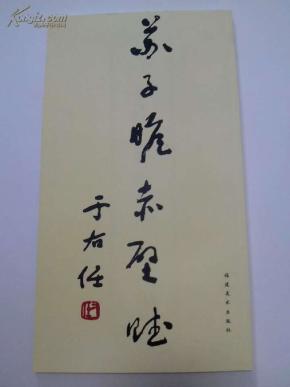 苏子瞻赤壁赋
于右任
福建美术出版社